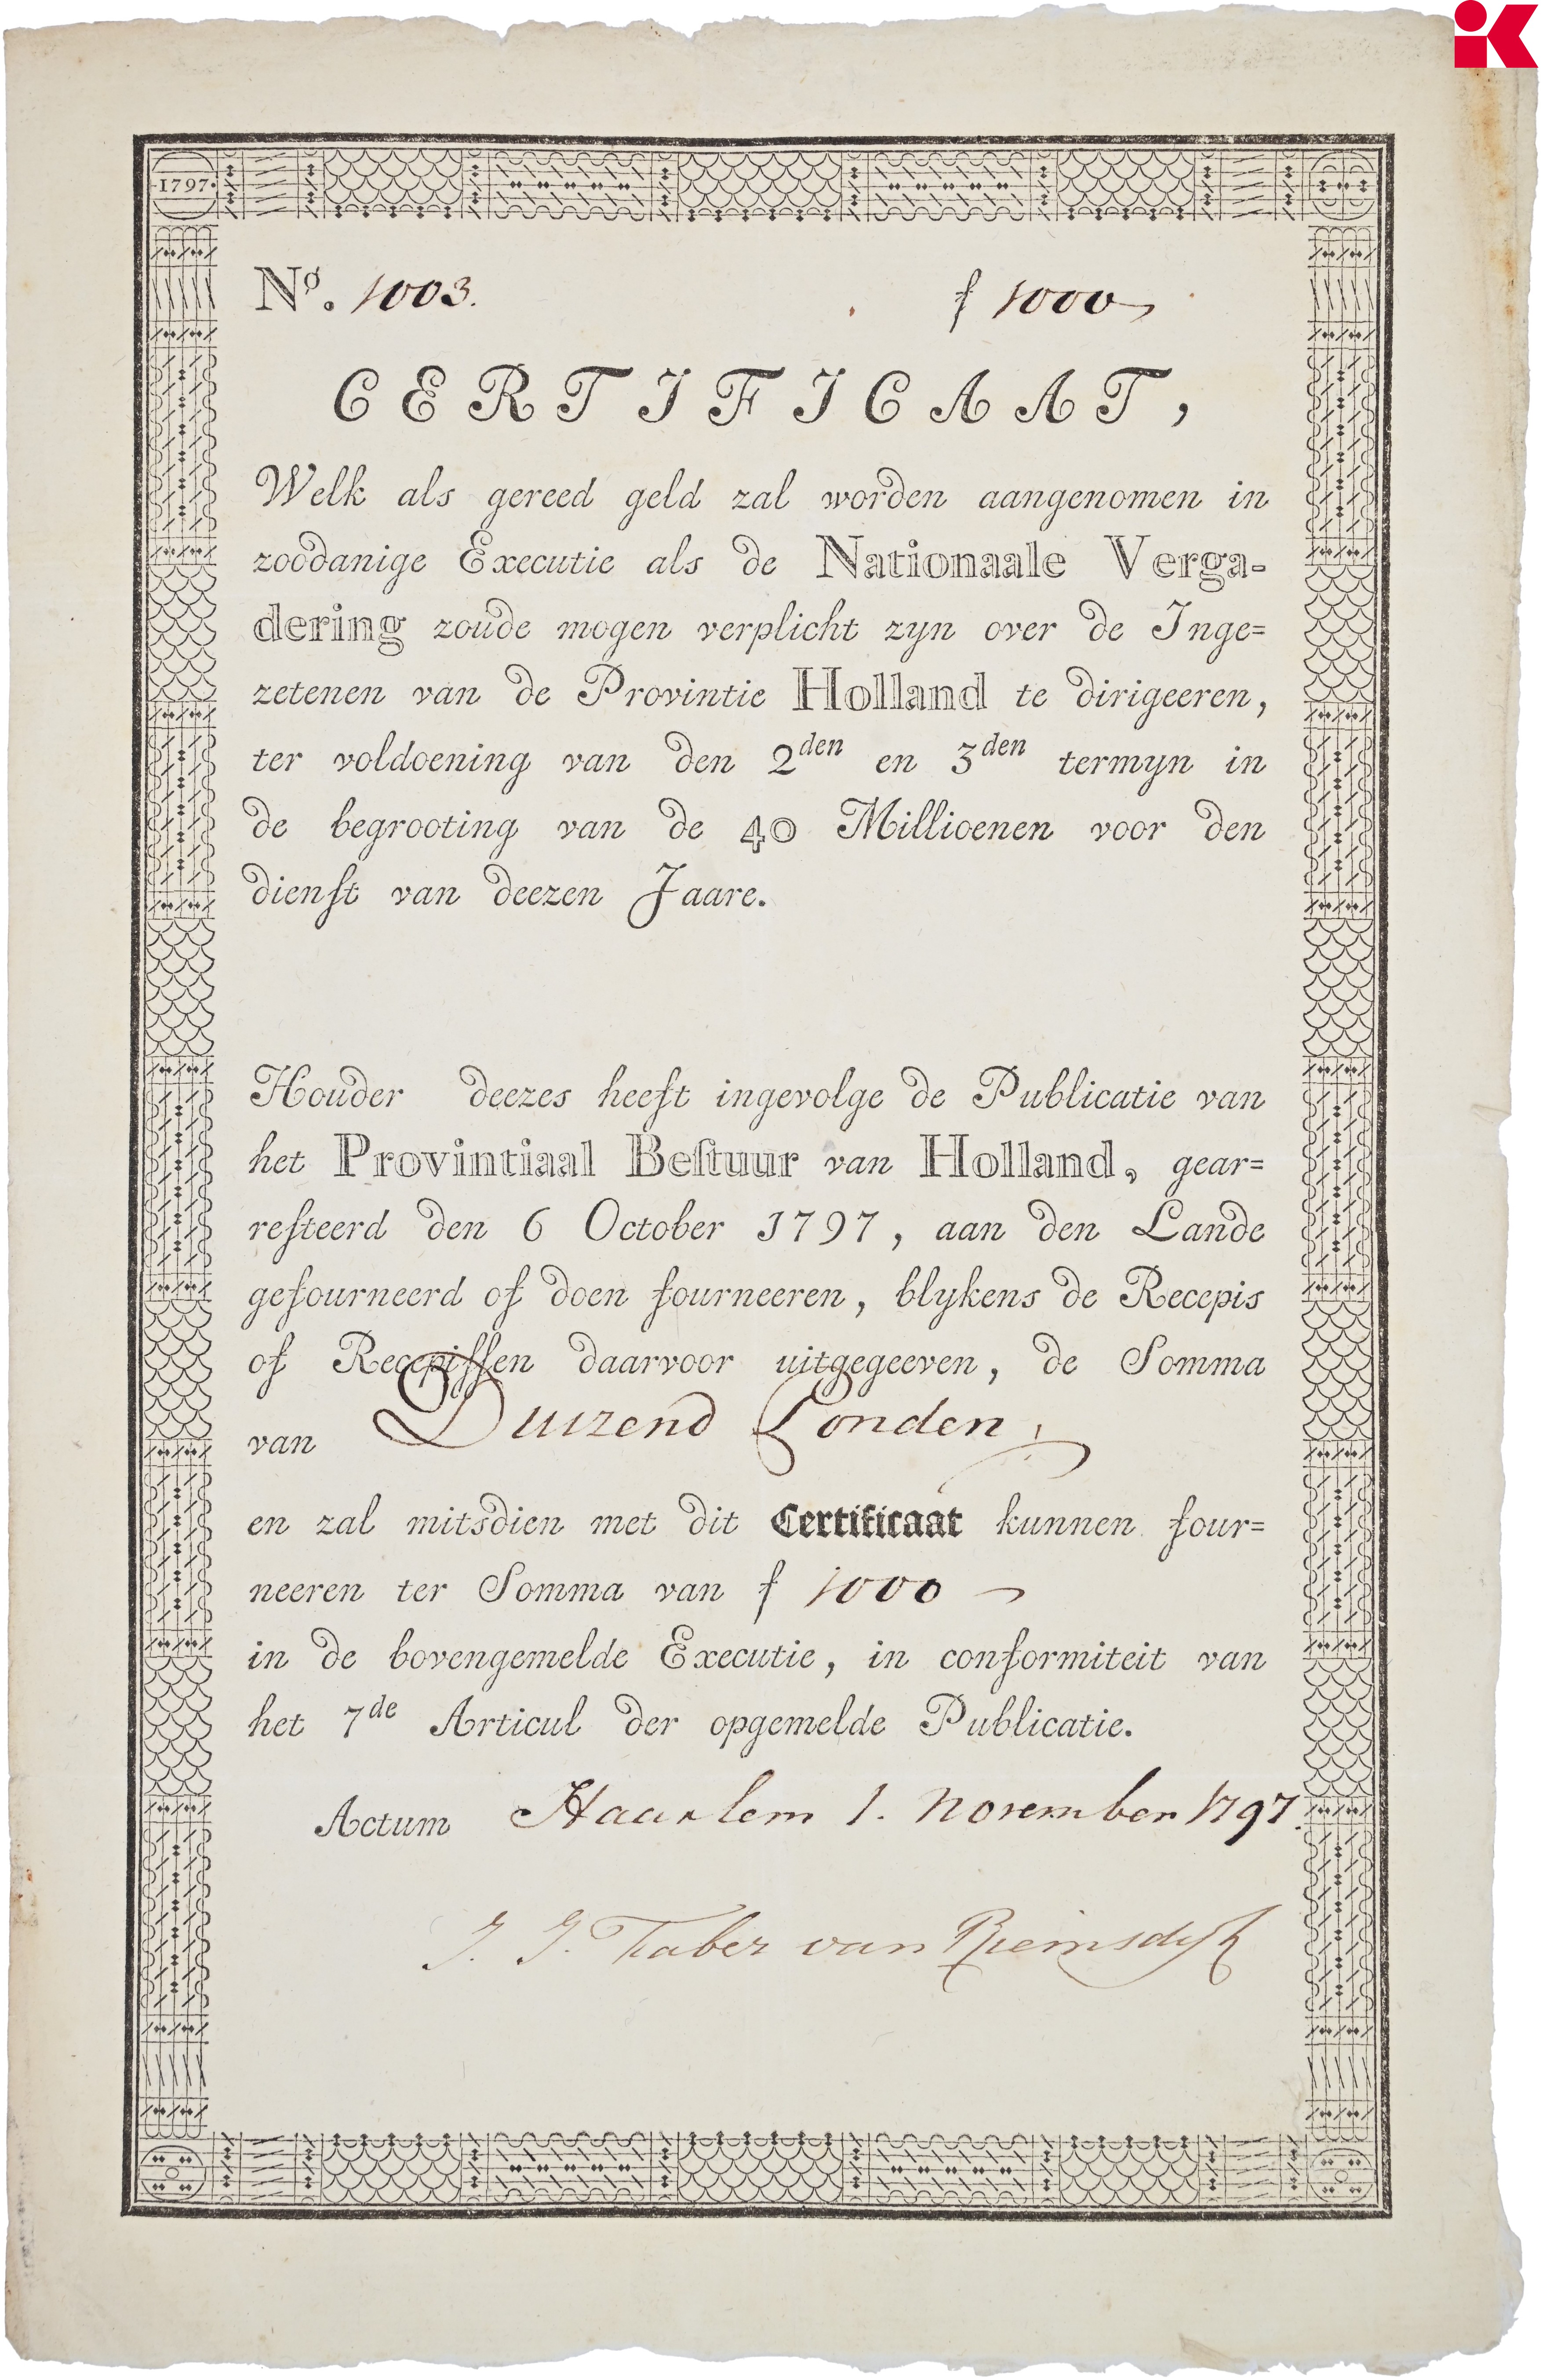 1797.
Nº. 1003.
f 1000
CERTIFICAAT,
Welk als gereed geld zal worden aangenomen in
zoodanige Executie als de Nationaale Verga-
dering zoude mogen verplicht zyn over de Inge=
zetenen van de Provintie Holland te dirigeeren,
ter voldoening van den 2den en 3den termyn in
de begrooting van de 40 Millioenen voor den
dienſt van deezen Jaare.
Houder deezes heeft ingevolge de Publicatie van
het Provintiaal Beſtuur van Holland, gear=
reſteerd den 6 October 1797, aan den Lande
gefourneerd of doen fourneeren, blykens de Recepis
of Recepiſſen daarvoor uitgegeeven, de Somma
van Duizend Ponden,
en zal mitsdien met dit Certificaat kunnen four=
neeren ter Somma van f 1000
in de bovengemelde Executie, in conformiteit van
het 7de Articul der opgemelde Publicatie.
Actum Haarlem 1. November 1797.
J. J. Faber van Riemsdyk